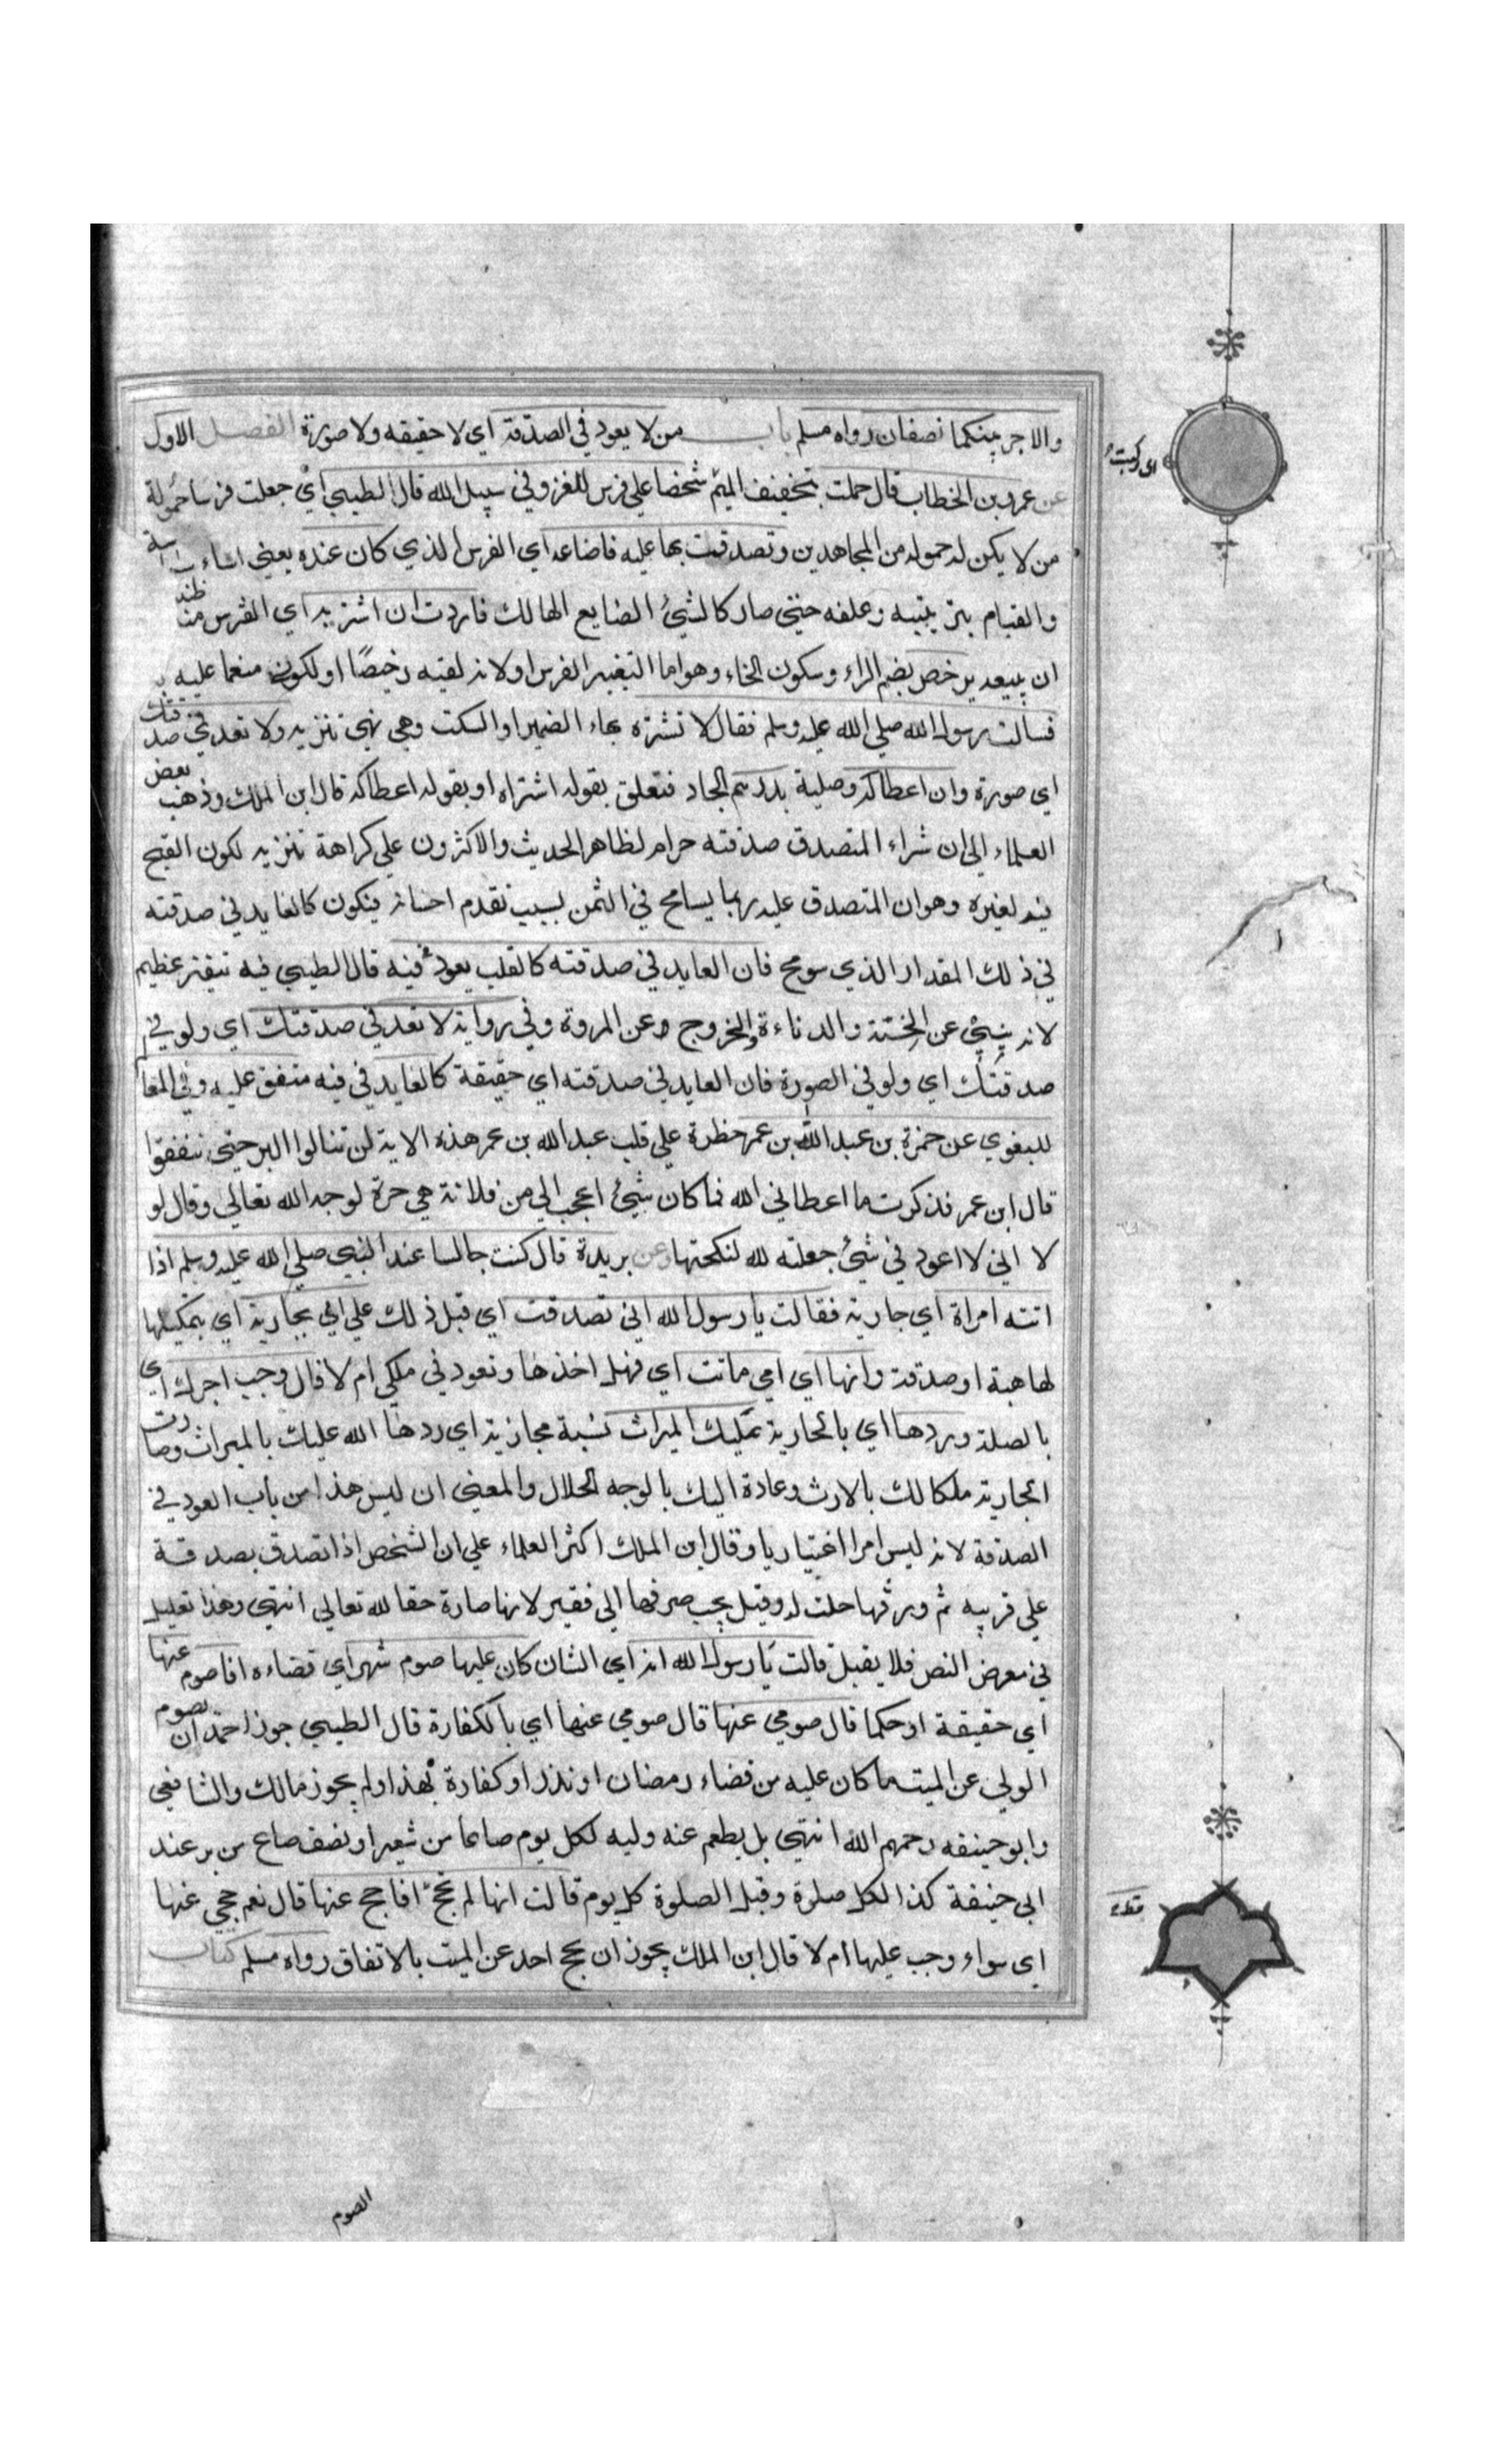 والاجر بينكما نصفان رواه مسلم باب من لا يعود في الصدقة اي لا حقيقه ولا صورة الفصل الاول
عن عمر بن الخطاب قال حملت بتخفيف الميم شخصا علي فرس للغزو في سبيل الله قال الطيبي اي جعلت فرسا حمولة
من لا يكن له حموله من المجاهدين وتصدقت بها عليه فاضاعه اي الفرس الذي كان عنده يعني اساء سياسة
والقيام بتربيته وعلفه حتي صار كالشيء الضايع الهالك فاردت ان اشتريه اي الفرس منه وظننت
ان يبيعه برخص بضم الراء وسكون الخاء وهو اما لتغيير الفرس او لانه لقيه رخيصا او لكونه منعما عليه
فسالت رسول الله صلي الله عليه وسلم فقال لا تشتره بهاء الضمير او السكت وهي نهي تنزيه ولا تعد في صدقتك
اي صورة وان اعطاكه وصلية بدرهم الجار فتعلق بقوله اشتراه او بقوله اعطاكه قال ابن الملك وذهب بعض
العلماء الي ان شراء المتصدق صدقته حرام لظاهر الحديث والاكثرون علي كراهة تنزيه لكون القبح
فيه لغيره وهو ان المتصدق عليه ربما يسامح في الثمن بسبب تقدم احسانه فيكون كالعايد في صدقته
في ذلك المقدار الذي سومح فان العايد في صدقته كالكلب يعود في قيه قال الطيبي فيه تنفير عظيم
لانه ينبيء عن الخسة والدناءة والخروج وعن المروة وفي رواية لا تعد في صدقتك اي ولو في
صدقتك اي ولو في الصورة فان العايد في صدقته اي حقيقة كالعايد في قيه متفق عليه وفي المعا
للبغوي عن حمزة بن عبد الله بن عمر خطرة علي قلب عبد الله بن عمر هذه الاية لن تنالوا البر حتي تنفقوا
قال ابن عمر فذكرت ما اعطاني الله فما كان شيء اعجب الي من فلانة هي حرة لوجه الله تعالي وقال لو
لا اني لا اعود في شيء جعلته لله لنكحتها وعن بريدة قال كنت جالسا عند النبي صلي الله عليه وسلم اذا
اتته امراة اي جارية فقالت يا رسول الله اني تصدقت اي قبل ذلك علي امي بجارية اي بتمليكها
لها هبة او صدقة وانها اي امي ماتت اي فهل اخذها وتعود في ملكي ام لا قال وجب اجرك اي
بالصلة وردها اي بالجارية عليك الميراث نسبة مجازية اي ردها الله عليك بالميراث وصارت
الجارية ملكا لك بالارث وعادة اليك بالوجه الحلال والمعني ان ليس هذا من باب العود في
الصدقة لانه ليس امرا اختياريا وقال ابن الملك اكثر العلماء علي ان الشخص اذا تصدق بصدقة
علي قريبه ثم ورثها حلت له وقيل يجب صرفها الي فقير لانها صارة حقا لله تعالي انتهي وهذا تعليل
في معرض النص فلا يقبل قالت يا رسول الله انه اي الشان كان عليها صوم شهر اي قضاءه افاصوم عنها
اي حقيقة او حكما قال صومي عنها قال صومي عنها اي بالكفارة قال الطيبي جوز احمد ان يصوم
الولي عن الميت ما كان عليه من قضاء رمضان او نذر او كفارة بهذا ولم يجوز مالك والشافعي
وابو حنيفه رحمهم الله انتهي بل يطعم عنه وليه لكل يوم صاعا من شعير او نصف صاع من بر عند
ابي حنيفة كذا لكل صلوة وقيل الصلوة كل يوم قالت انها لم تحج افاحج عنها قال نعم حجي عنها
اي سواء وجب عليها ام لا قال ابن الملك يجوز ان يحج احد عن الميت بالاتفاق رواه مسلم كتاب
الصوم